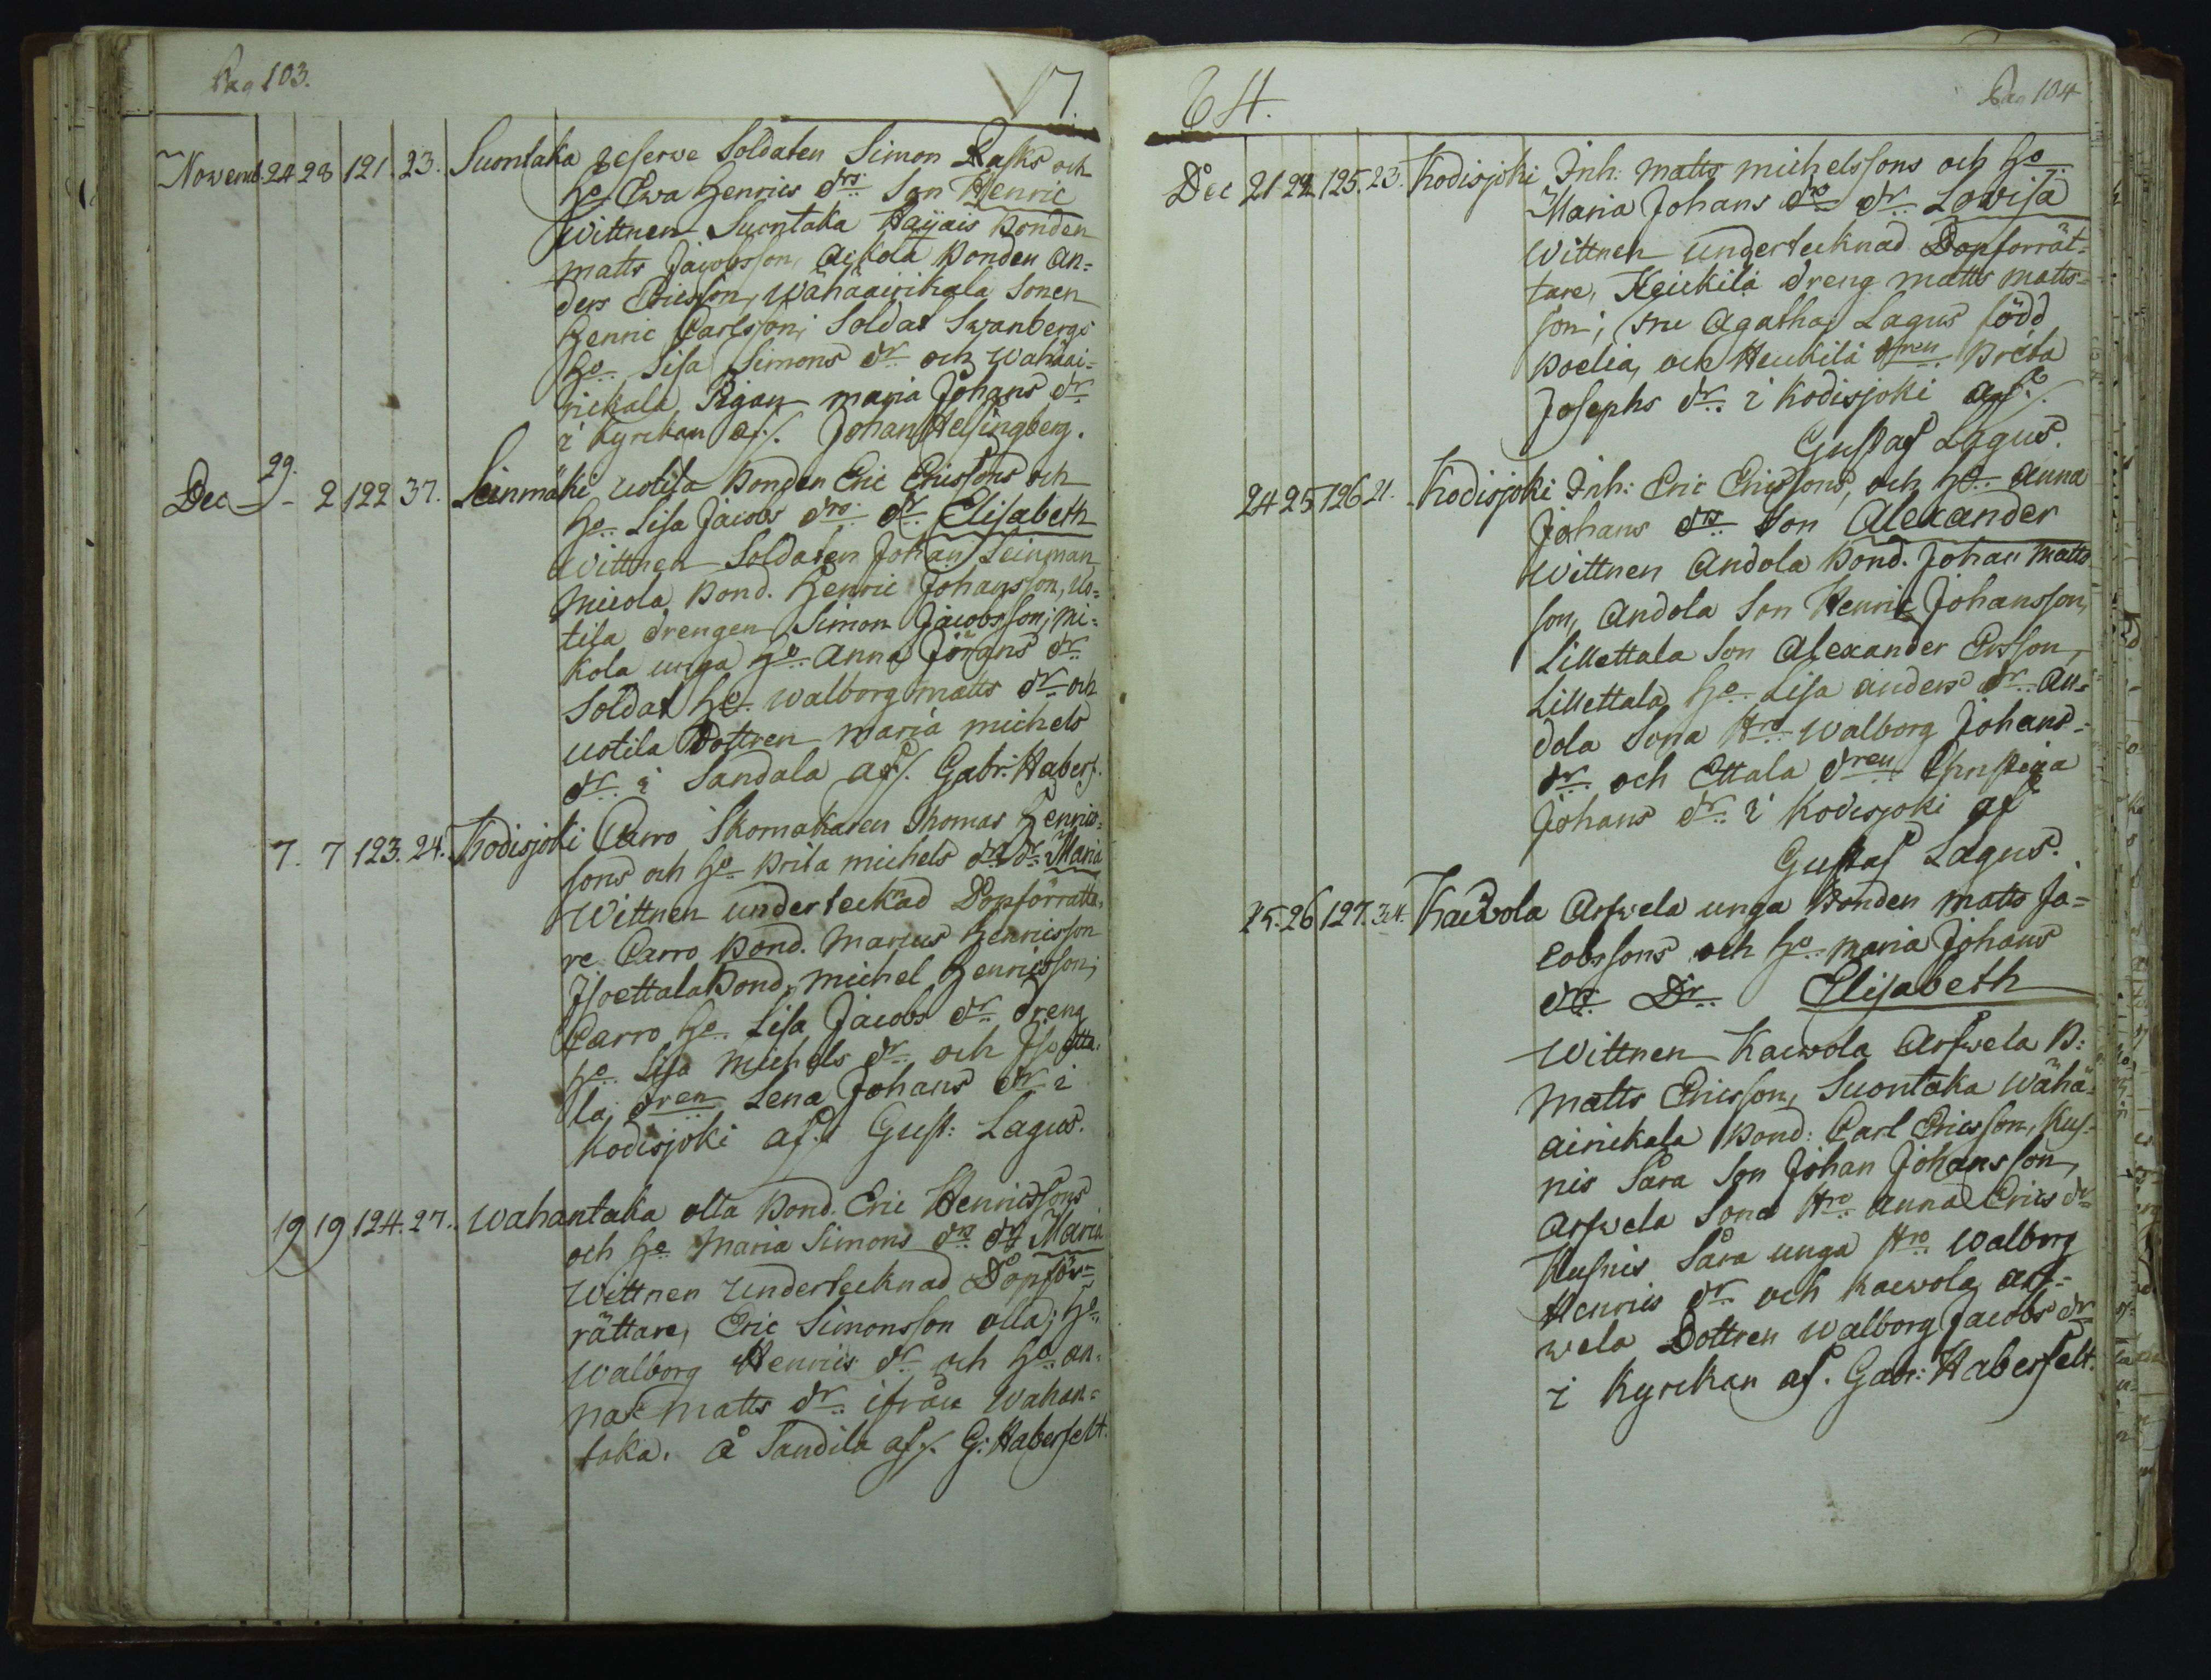 Pag 103.
17
Novemb. 24 28 121. 23. Suontaka reserve Soldaten Simon Rasks och
ho Ewa Henrics drs Son Henric
Wittnen Suontaka Haijais Bonden
Matts Jacobsson, Aikola Bonden An=
ders Ericsson, Wähäairikala Sonen
Henric Carlsson; Soldat Swanbergs
ho Lisa Simons dr och Wähäai=
rickala Pigan Maria Johans dr
i Kyrckan af/. Johan Helsingberg.
29.
Dec - 2 122 37. Leinmäki Uotila Bonden Eric Ericssons och
ho Lisa Jacobs drs dr Elisabeth
Wittnen Soldaten Johan Leinman
Micola Bond. Henric Johansson, Uo=
tila drengen Simon Jacobsson; Mi=
kola unga ho Anna Jörans dr
Soldat ho Walborg Matts dr och
Uotila Dottren Maria Michels
dr i Sandala af/. Gabr: Haberf.
7. 7 123. 24. Kodisjoki Carro Skomakaren Thomas Henrics=
sons och ho Brita Michels drs dr Maria
Wittnen undertecknad Dopförrätta=
re Carro Bond. Marcus Henricsson
Isoettala Bond. Michel Henricsson;
Carro ho Lisa Jacobs dr dreng
ho Lisa Michels dr och Isoetta=
la dren Lena Johans dr i
Kodisjoki af/. Gust: Lagus.
19 19 124. 27. Wahantaka olla Bond. Eric Henricssons
och ho Maria Simons drs dr Maria
Wittnen Undertecknad Dopför=
rättare, Eric Simonsson olla; ho
Walborg Henrics dr och ho An=
na Matts dr ifrån Wahan=
taka. å Sandila af/. G: Haberfelt.
64.
Pag 104
Dec 21 22 125. 23. Kodisjoki Inh: Matts Michelssons och ho
Maria Johans drs dr Lovisa
Wittnen undertecknad Dopförrät=
tare, Heickilä dreng Matts Matts=
son; Fru Agatha Lagus född
Poelia, och Heickilä dren Brita
Josephs dr i Kodisjoki af/.
Gustaf Lagus.
24 25 126 21. Kodisjoki Inh: Eric Ericssons, och ho Anna
Johans drs Son Alexander
Wittnen Andola Bond. Johan Matts
son, Andola Son Henric Johansson,
Lillettala Son Alexander Ersson,
Lillettala ho Lisa Anders dr An=
dola Sona Hro Walborg Johans=
dr och Ettala dren Christina
Johans dr i Kodisjoki af
Gustaf Lagus.
25. 26 127. 34. Kaivola Arfwela unga Bonden Matts Ja=
cobssons och ho Maria Johans
drs Dr Elisabeth
Wittnen Kaivola Arfwela B:
Matts Ericsson, Suontaka Wähä=
airickala Bond: Carl Ericsson, Kus=
nis Sara Son Johan Johansson,
Arfwela Sona Hro Anna Erics dr
Kusnis Sara unga Hro Walborg
Henrics dr och Kaivola Arf=
wela Dottren Walborg Jacobs dr
i Kyrckan af. Gabr: Haberfelt.